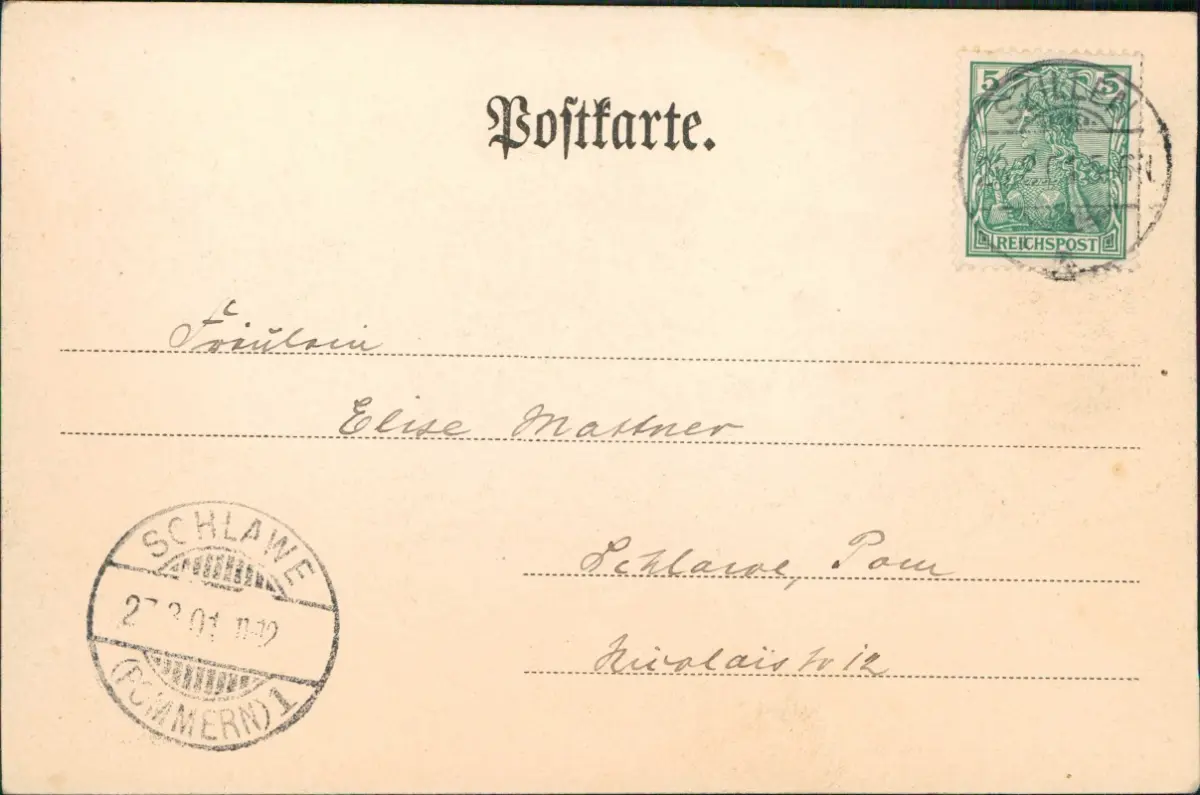 Postkarte.
5 5
REICHSPOST
5-6N
Fräulein
Elise Mattner
Schlawe, Pom
Nicolaistr 12
SCHLAWE
27.3.01 11-12
(POMMERN) 1